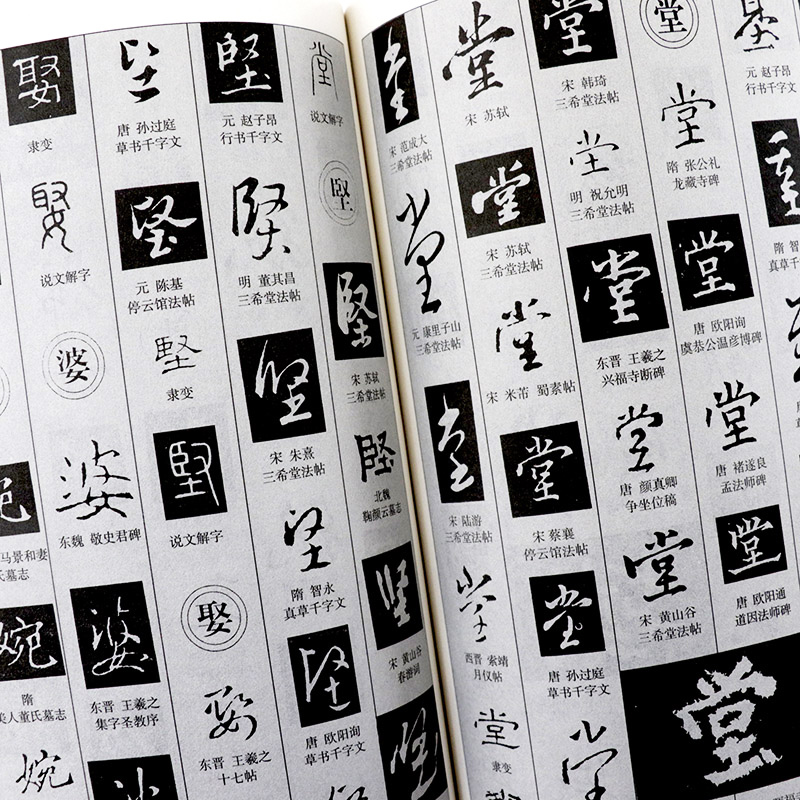 元 赵子昂
行书千字文
隋 智
堂
堂
隋 张公礼
龙藏寺碑
堂
唐 欧阳询
虞恭公温彦博碑
堂
唐 褚遂良
孟法师碑
堂
唐 欧阳通
道因法师碑
堂
堂
宋 韩琦
三希堂法帖
堂
明 祝允明
三希堂法帖
堂
东晋 王羲之
兴福寺断碑
堂
唐 颜真卿
争坐位稿
堂
宋 黄山谷
三希堂法帖
堂
宋 苏轼
堂
宋 苏轼
三希堂法帖
堂
宋 米芾 蜀素帖
堂
宋 蔡襄
停云馆法帖
堂
唐 孙过庭
草书千字文
堂
堂
宋 范成大
三希堂法帖
堂
元 康里子山
三希堂法帖
堂
宋 陆游
三希堂法帖
堂
西晋 索靖
月仪帖
堂
隶变
堂
说文解字
堅
堅
宋 苏轼
三希堂法帖
堅
北魏
鞠颜云墓志
堅
宋 黄山谷
春游词
堅
堅
元 赵子昂
行书千字文
堅
明 董其昌
三希堂法帖
堅
宋 朱熹
三希堂法帖
堅
隋 智永
真草千字文
堅
唐 欧阳询
草书千字文
堅
唐 孙过庭
草书千字文
堅
元 陈基
停云馆法帖
堅
隶变
堅
说文解字
娶
娶
东晋 王羲之
十七帖
娶
隶变
娶
说文解字
婆
婆
东魏 敬史君碑
婆
东晋 王羲之
集字圣教序
马景和妻
氏墓志
婉
隋
美人董氏墓志
婉